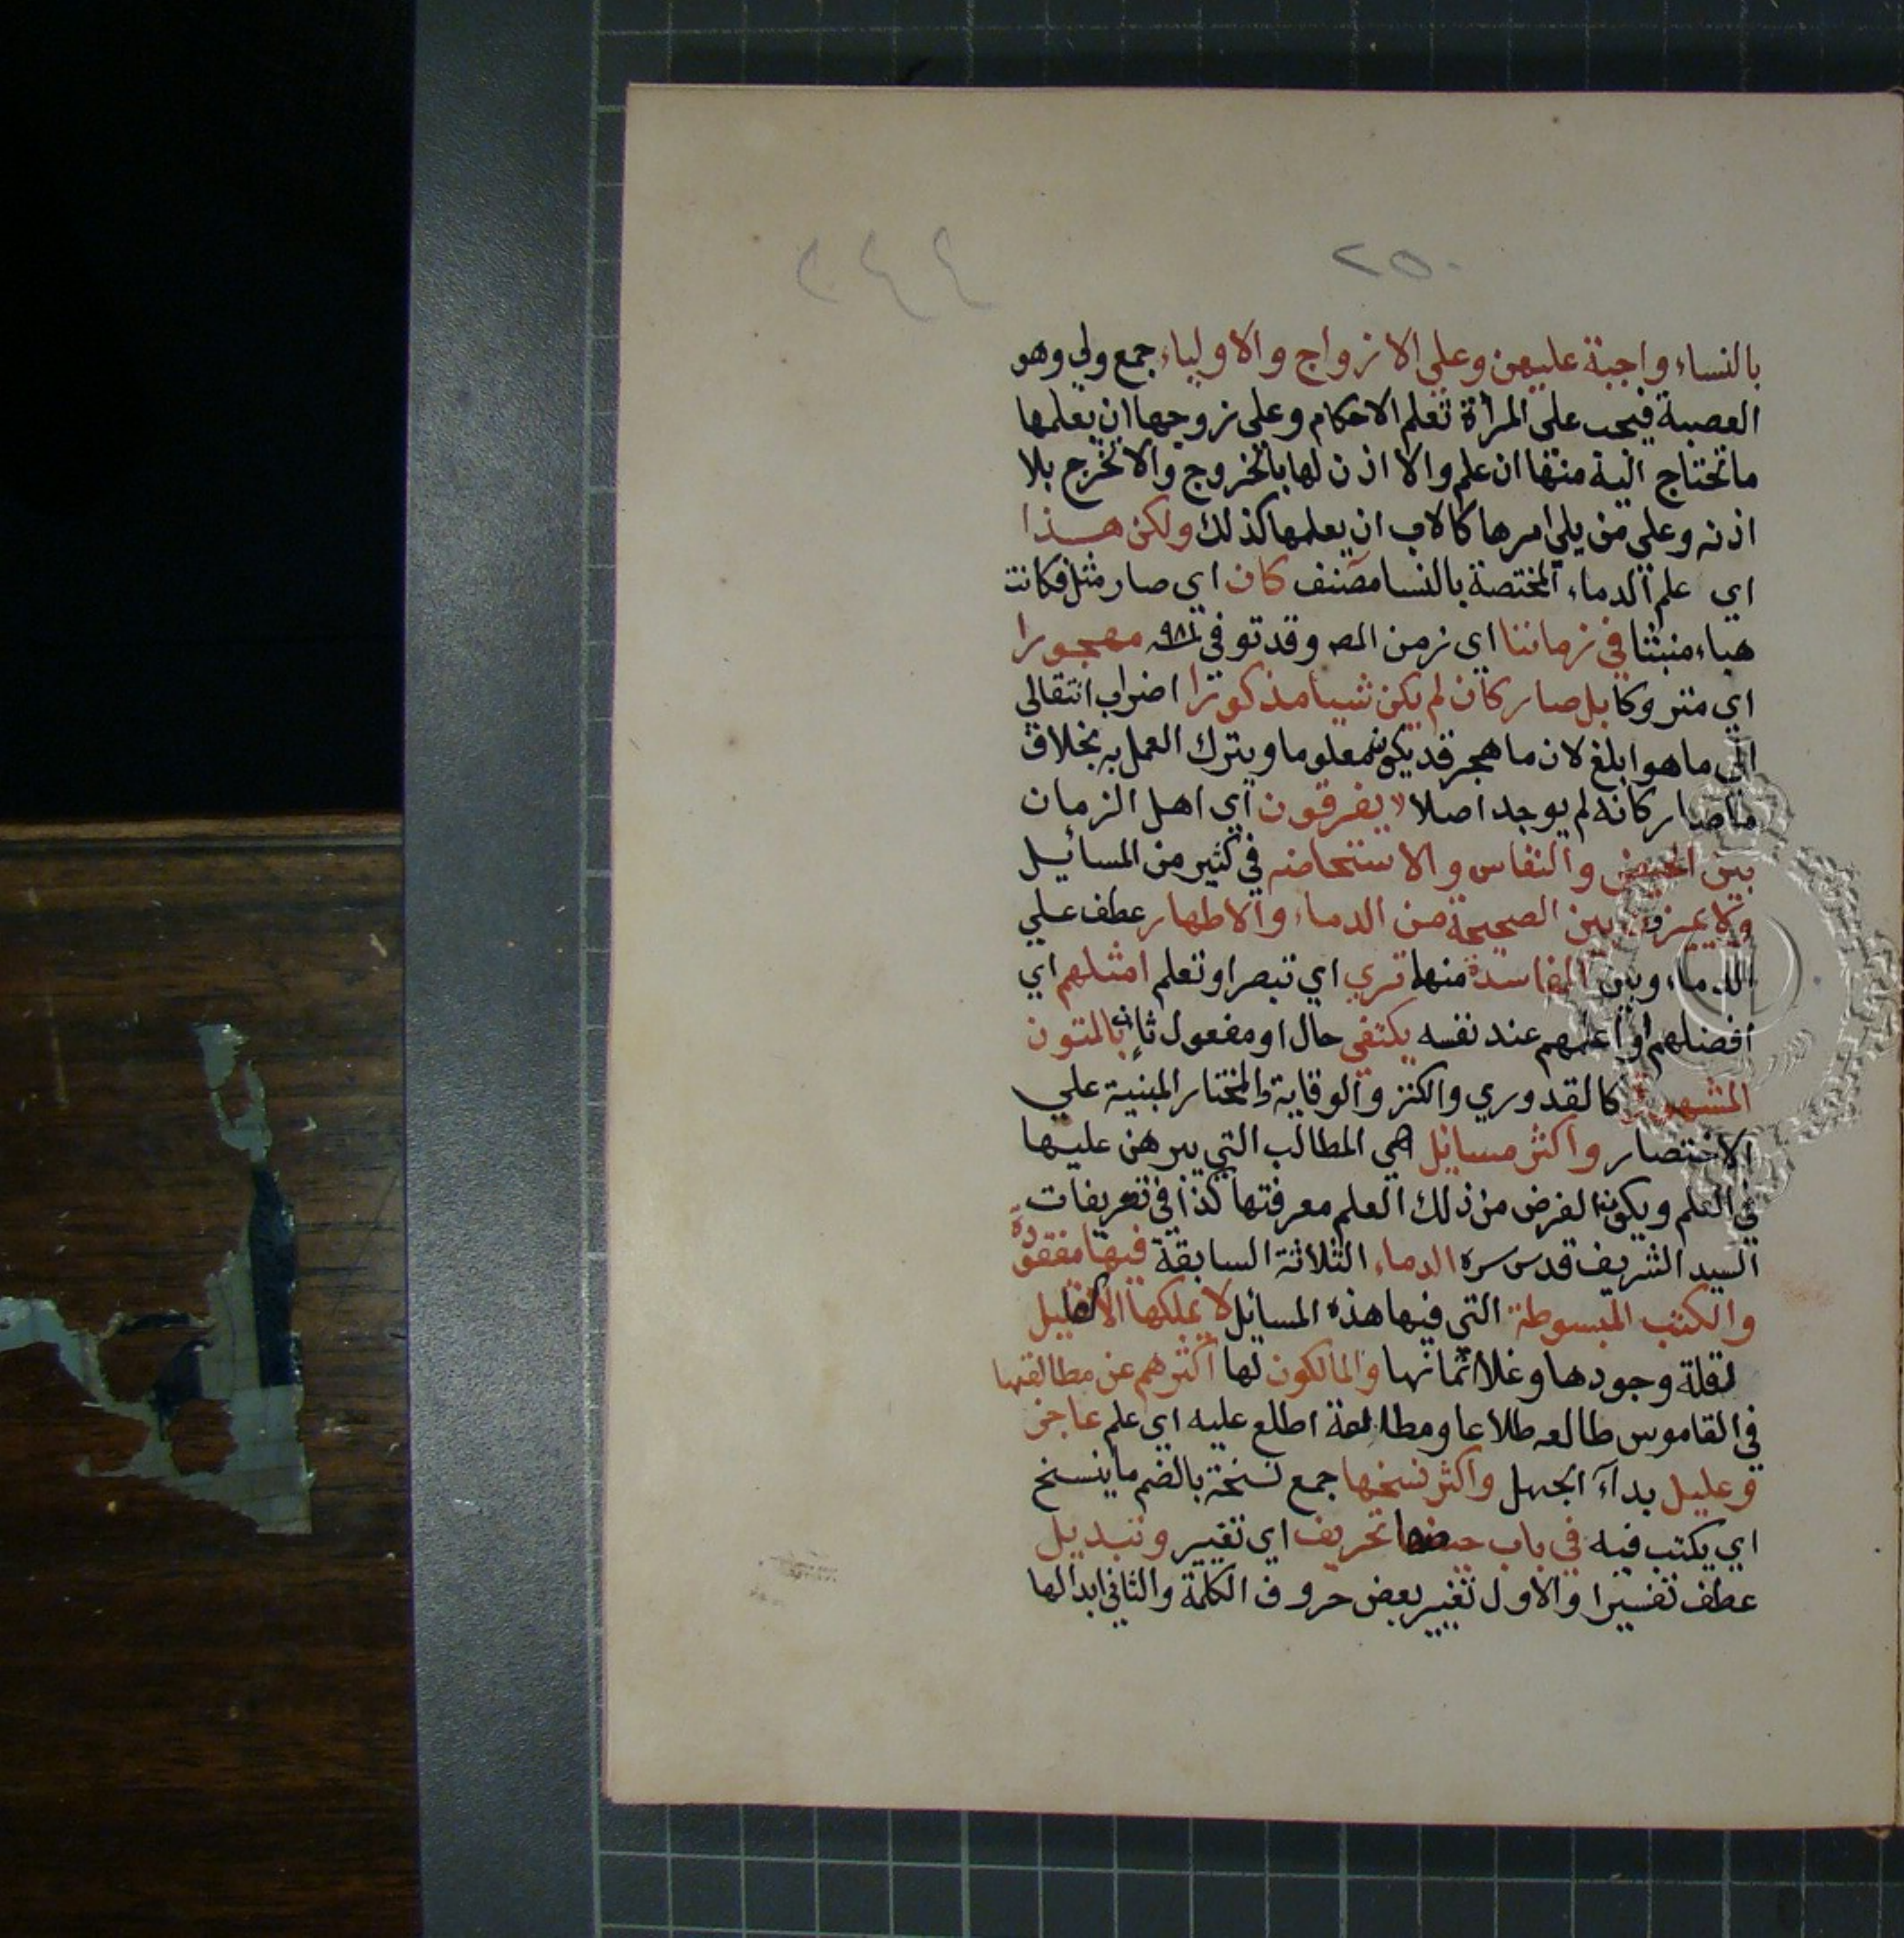 ٢٥٠
بالنساء واجبة عليهن وعلى الازواج والاولياء جمع ولي وهو
العصبة فيجب على المرأة تعلم الاحكام وعلى زوجها ان يعلمها
ما تحتاج اليه منها ان علم والا اذن لها بالخروج والا تخرج بلا
اذنه وعلى من يلي امرها كالاب ان يعلمها كذلك ولكن هذا
اي علم الدماء المختصة بالنسا مصنف كان اي صار مثل فكانت
هباء منبثا في زماننا اي زمن المص وقد توفي ٩٨١ مهجورا
اي متروكا بل صار كان لم يكن شيأ مذكورا اضراب انتقالي
الى ما هو ابلغ لان ما هجر قد يكون معلوما ويترك العمل به بخلاف
ما صار كانه لم يوجد اصلا لا يفرقون اي اهل الزمان
بين الحيض والنفاس والاستحاضه في كثير من المسائيل
ولا يميزون بين الصحيحة من الدماء والاطهار عطف علي
الدماء وبين الفاسدة منها تري اي تبصر او تعلم امثلهم اي
افضلهم او اعلمهم عند نفسه يكتفي حال او مفعول ثان بالمتون
المشهورة كالقدوري والكنز والوقاية والمختار المبنية علي
الاختصار واكثر مسائل هي المطالب التي يبرهن عليها
في العلم ويكون الغرض من ذلك العلم معرفتها كذا في تعريفات
السيد الشريف قدس سره الدماء الثلاثة السابقة فيها مفقودة
والكتب المبسوطة التي فيها هذه المسائل لا يملكها الا القليل
لقلة وجودها وغلا اثمانها والمالكون لها اكثرهم عن مطالعتها
في القاموس طالعه طلاعا ومطالعة اطلع عليه اي علم عاجز
وعليل بداء الجهل واكثر نسخها جمع نسخة بالضم ما ينسخ
اي يكتب فيه في باب حيضها تحريف اي تغيير وتبديل
عطف تفسيرا والاول تغيير بعض حروف الكلمة والثاني ابدالها